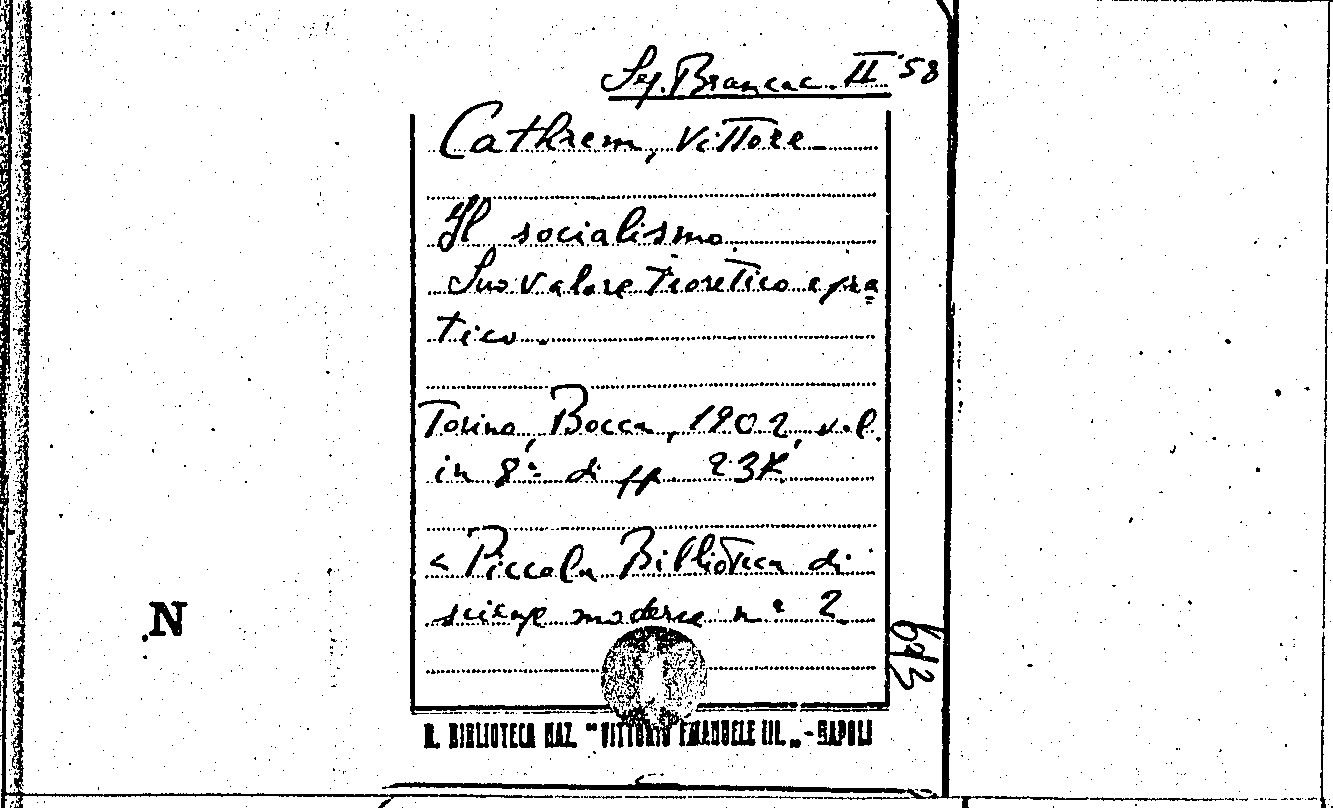 Sej. Brancac. II 58
Cathrein, Vittore
Il socialismo
Suo valore teoretico e pra=
tico.
Torino, Bocca, 1902, vol.
in 8° di pp.
< Piccola Biblioteca di
scienze moderne n° 2
N
R. BIBLIOTECA NAZ. "VITTORIO EMANUELE III." - NAPOLI